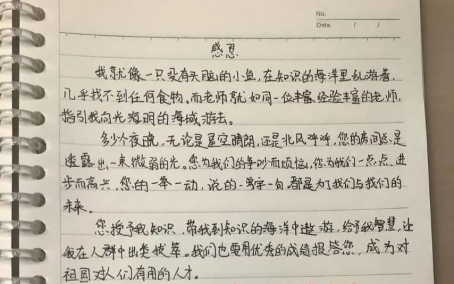 No.
Date. / /
感恩
我就像一只没有头脑的小鱼,在知识的海洋里乱游着,
几乎找不到任何食物。而老师就如同一位丰富经验丰富的老师,
指引我向光海明的海域游去。
多少个夜晚,无论是星空晴朗,还是北风呼呼,您的房间总是
透露出一束微弱的光。您为我们的争吵而烦恼,你为我们一点点进
步而高兴,您的一举一动,说的一字一句都是为了我们与我们的
未来。
您授予我知识,带我到知识的海洋中遨游,给予我智慧,让
我在人群中出类拔萃。我们也要用优秀的成绩报答您,成为对
祖国对人们有用的人才。